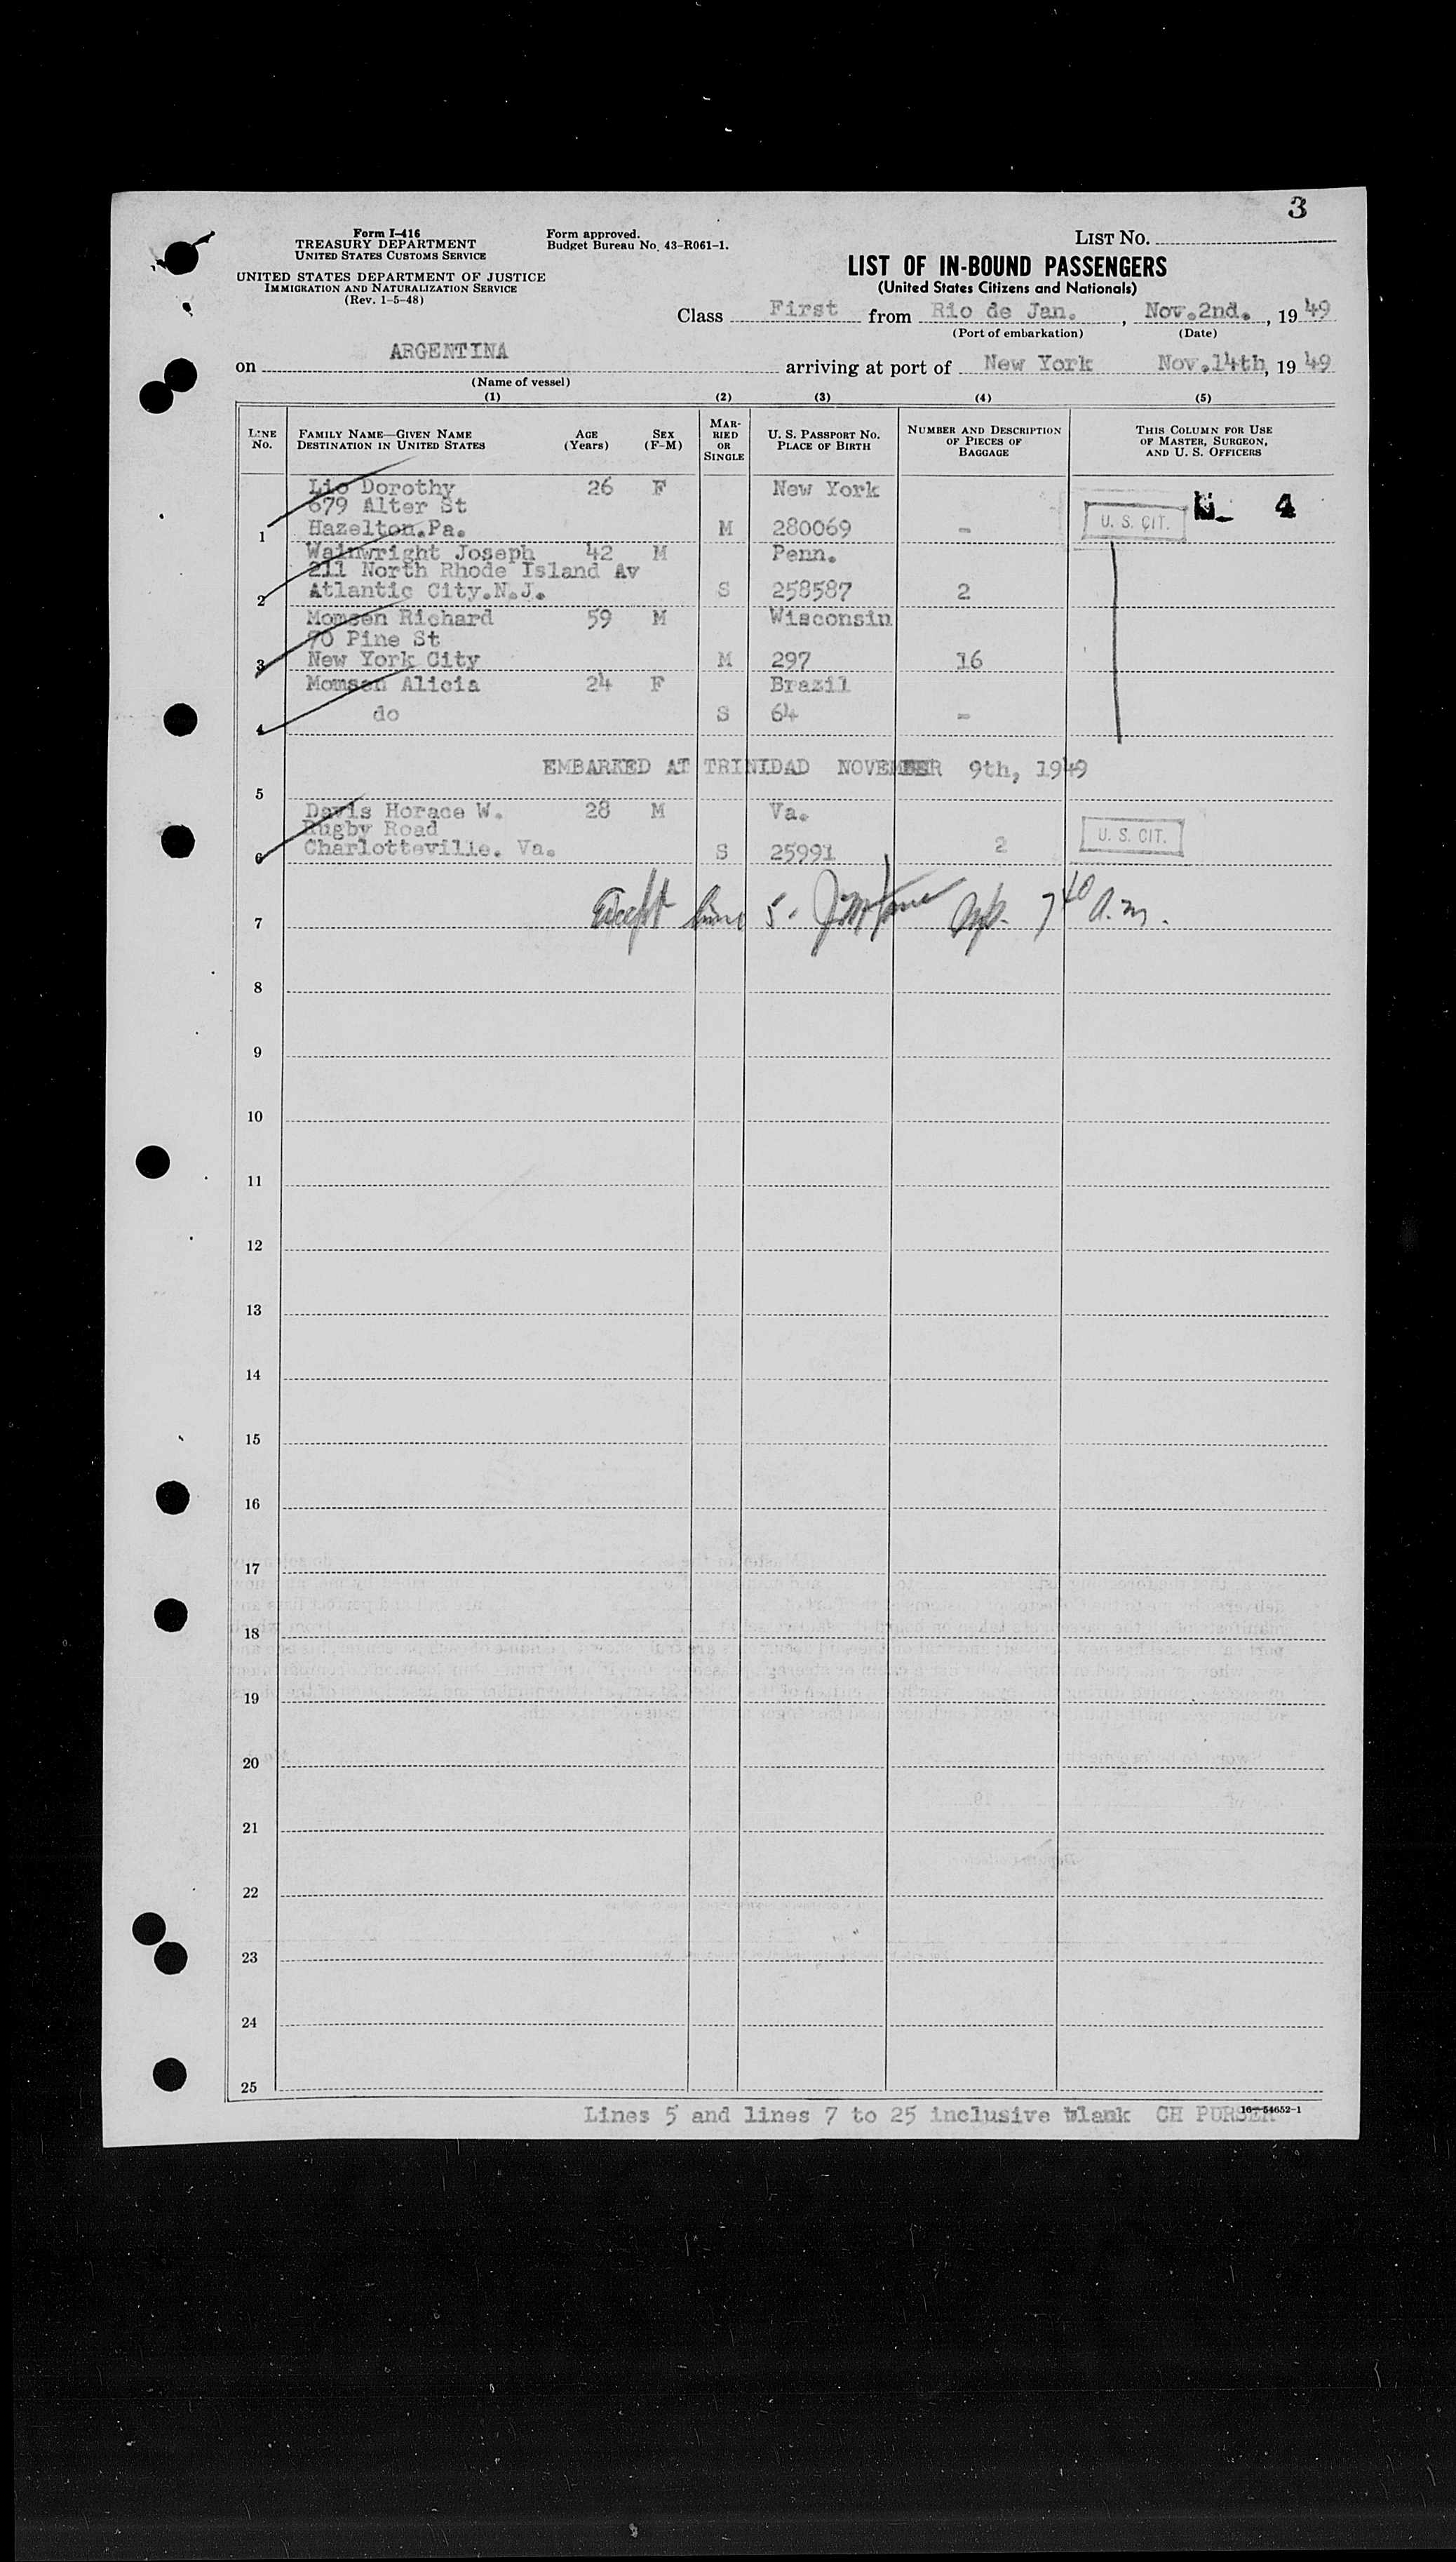 3
Form I-416
TREASURY DEPARTMENT
UNITED STATES CUSTOMS SERVICE
UNITED STATES DEPARTMENT OF JUSTICE
IMMIGRATION AND NATURALIZATION SERVICE
(Rev. 1-5-48)
Form approved.
Budget Bureau No. 43-R061-1.
LIST NO.
LIST OF IN-BOUND PASSENGERS
(United States Citizens and Nationals)
Class First from Rio de Jan. , Nov.2nd. , 19 49
(Port of embarkation) (Date)
on ARGENTINA arriving at port of New York Nov.14th, 19 49
(Name of vessel)
(1) (2) (3) (4) (5)
LINE No. FAMILY NAME—GIVEN NAME DESTINATION IN UNITED STATES AGE (Years) SEX (F-M) MARRIED OR SINGLE U. S. PASSPORT NO. PLACE OF BIRTH NUMBER AND DESCRIPTION OF PIECES OF BAGGAGE THIS COLUMN FOR USE OF MASTER, SURGEON, AND U. S. OFFICERS
Lio Dorothy 26 F New York
679 Alter St U. S. CIT. 4
1 Hazelton.Pa. M 280069 -
Wainwright Joseph 42 M Penn.
211 North Rhode Island Av
2 Atlantic City.N.J. S 258587 2
Momsen Richard 59 M Wisconsin
70 Pine St
3 New York City M 297 16
Momsen Alicia 24 F Brazil
4 do S 64 -
EMBARKED AT TRINIDAD NOVEMBER 9th, 1949
5
Davis Horace W. 28 M Va.
Rugby Road U. S. CIT.
6 Charlotteville. Va. S 25991 2
Except line 5. 7 40 a.m.
7
8
9
10
11
12
13
14
15
16
17
18
19
20
21
22
23
24
25
Lines 5 and lines 7 to 25 inclusive blank CH PURSER 16-54652-1